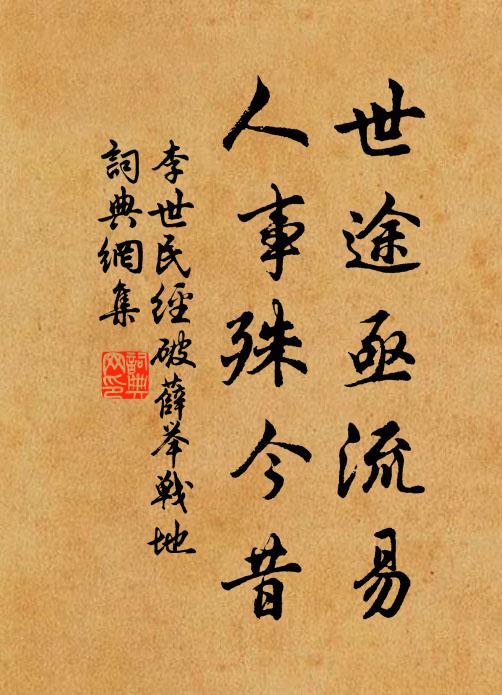 世途亟流易
人事殊今昔
李世民經破薛举戰地
詞典網集
詞典網印